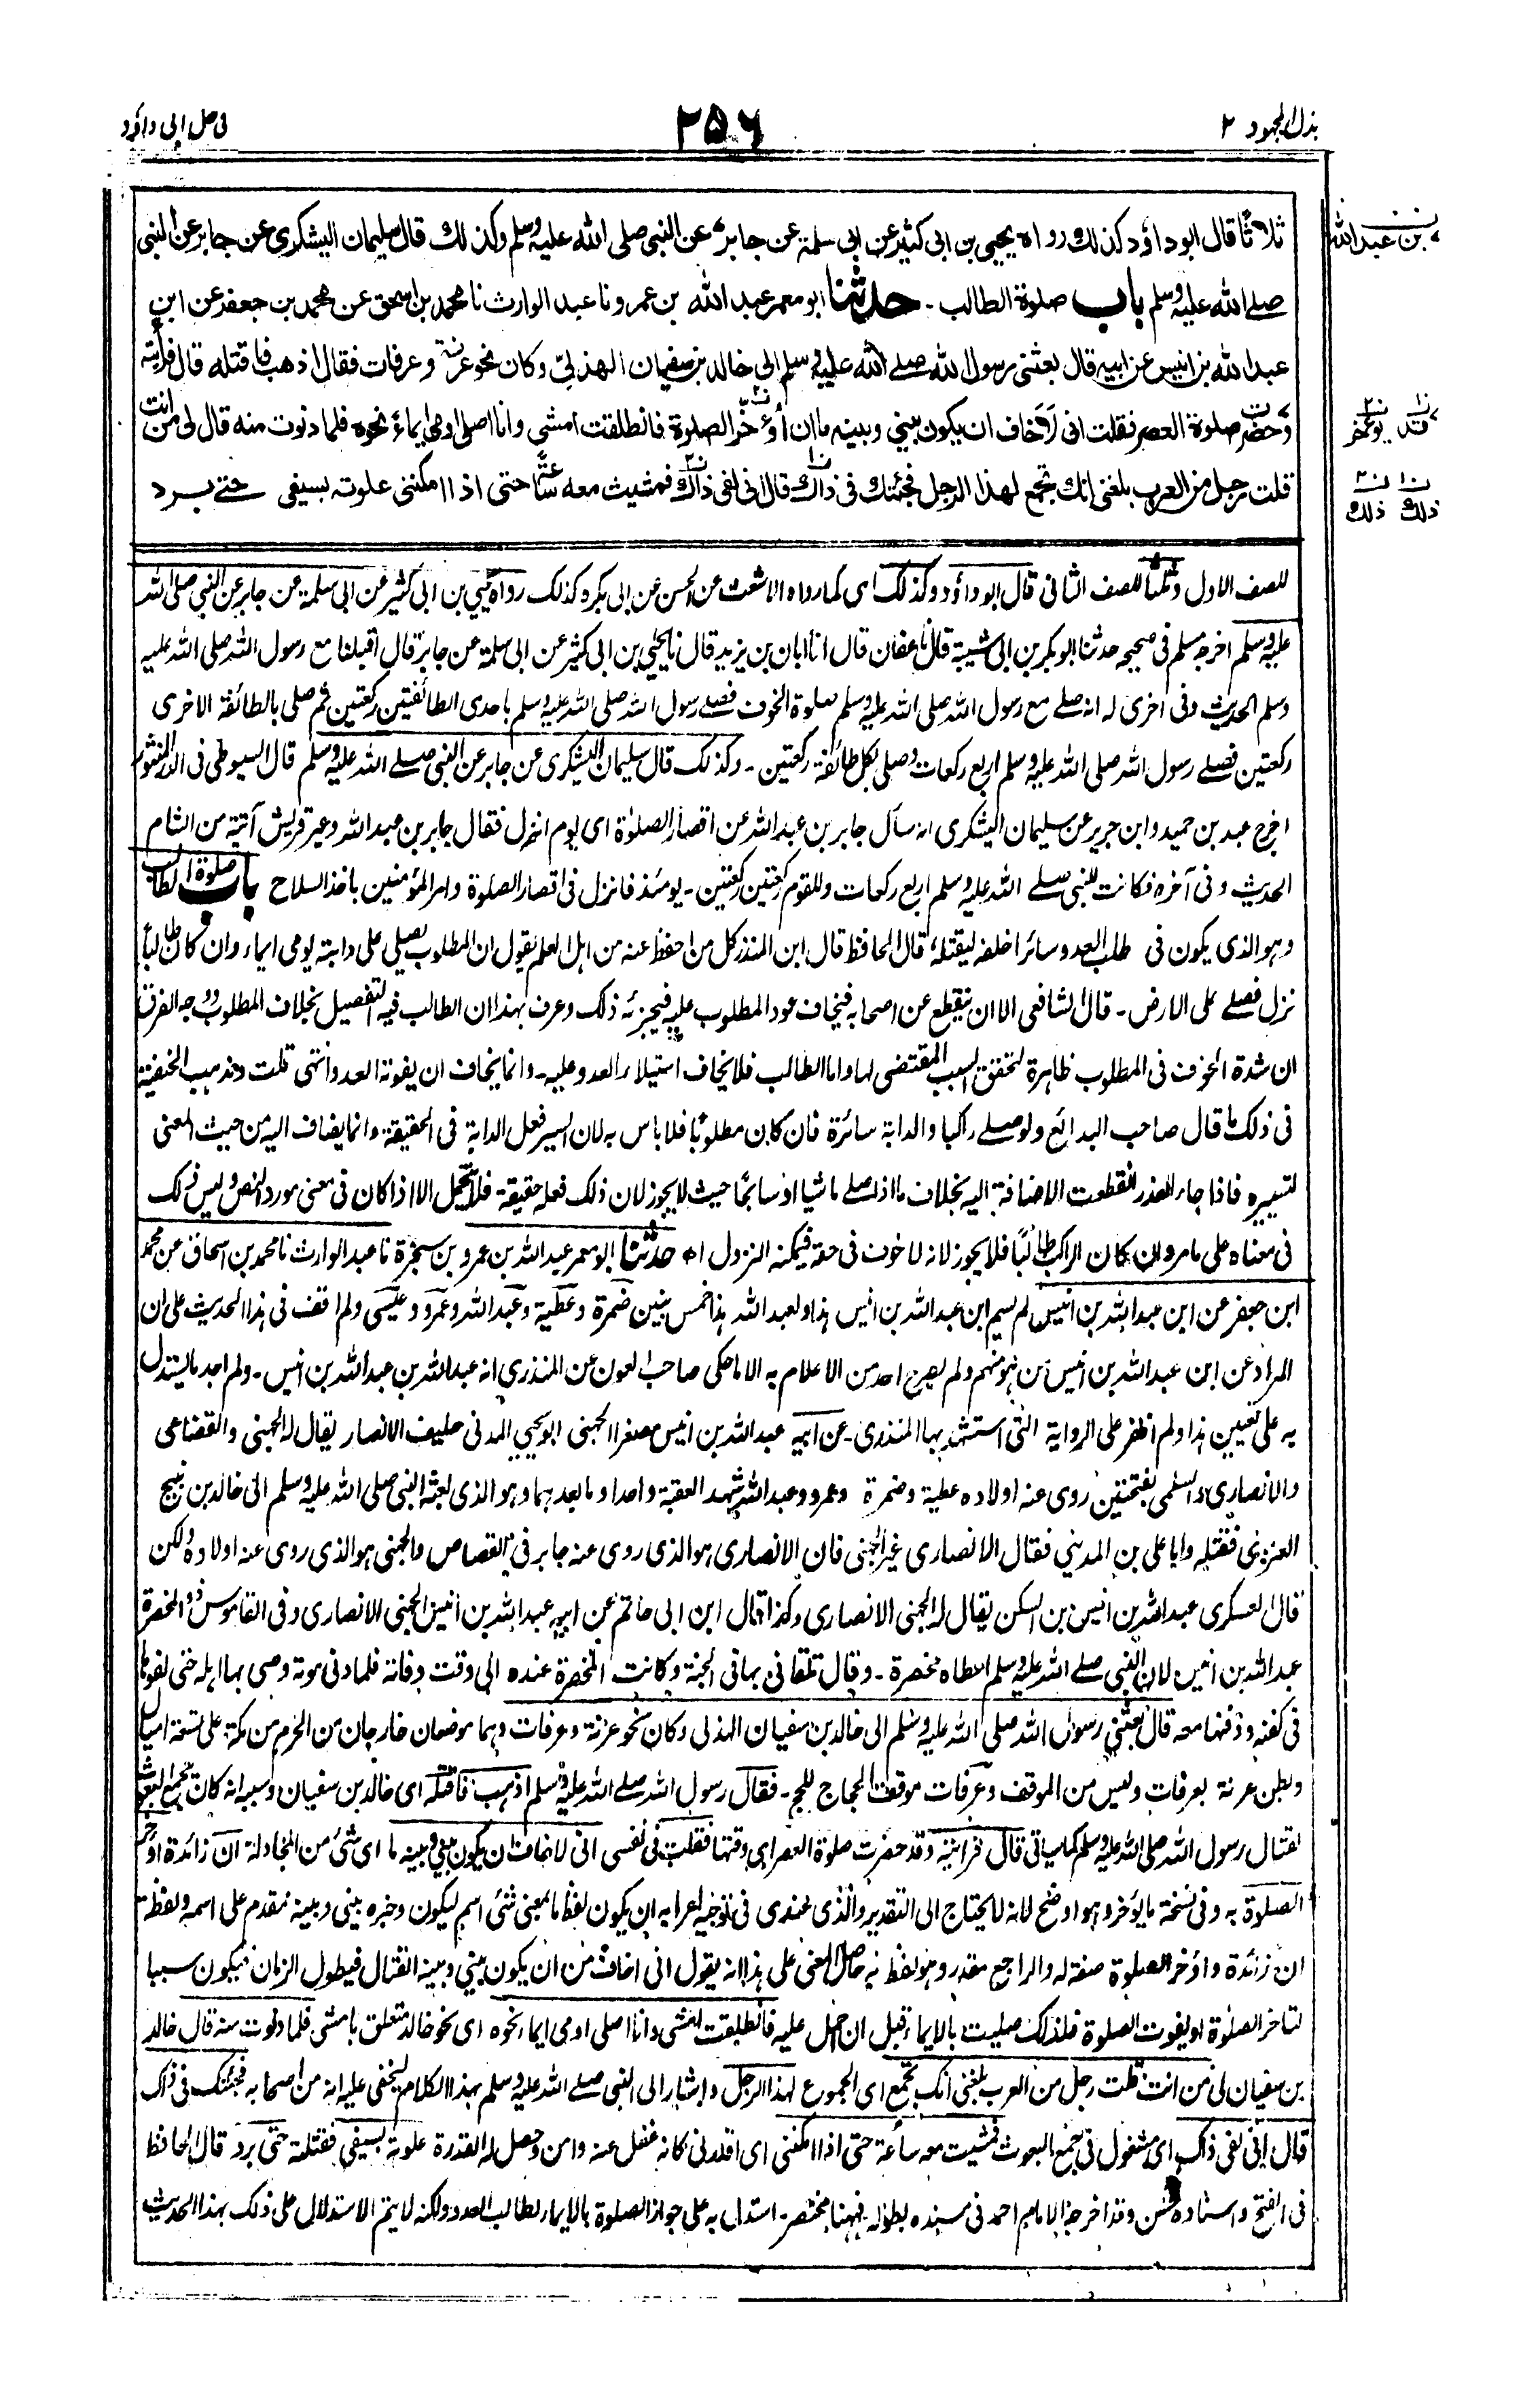 بذل المجهود ٢
٢٥٦
فی حل ابی داؤد
ثلاثًا قال ابو داؤد كذلك رواه يحيى بن ابى كثير عن ابى سلمة عن جابر عن النبى صلى الله عليه وسلم وكذلك قال سليمان اليشكرى عن جابر عن النبى
بن عبد الله
صلى الله عليه وسلم باب صلوة الطالب - حدثنا ابو معمر عبد الله بن عمرو نا عبد الوارث نا محمد بن اسحق عن محمد بن جعفر عن ابن
عبد الله بن انيس عن ابيه قال بعثنى رسول الله صلى الله عليه وسلم الى خالد بن سفيان الهذلى وكان نحو عرنة وعرفات فقال اذهب فاقتله قال فرأيته
وحضرت صلوة العصر فقلت انى لاخاف ان يكون بينى وبينه ما ان اؤخر الصلوة فانطلقت امشى وانا اصلى اومى ايماء نحوه فلما دنوت منه قال لى من انت
قلت رجل من العرب بلغنى انك تجمع لهذا الرجل فجئتك فى ذاك قال انى لفى ذاك فمشيت معه ساعة حتى اذا امكننى علوته بسيفى حتى برد
ذلك ذلك
للصف الاول وثلثا للصف الثانى قال ابو داؤد وكذلك اى كما رواه الاشعث عن الحسن عن ابى بكره كذلك رواه يحيى بن ابى كثير عن ابى سلمة عن جابر عن النبى صلى الله
عليه وسلم اخرجه مسلم فى صحيحه حدثنا ابو بكر بن ابى شيبة قال نا عفان قال انا ابان بن يزيد قال نا يحيى بن ابى كثير عن ابى سلمة عن جابر قال اقبلنا مع رسول الله صلى الله عليه
وسلم الحديث وفى اخرى له انه صلى مع رسول الله صلى الله عليه وسلم صلوة الخوف فصلى رسول الله صلى الله عليه وسلم باحدى الطائفتين ركعتين ثم صلى بالطائفة الاخرى
ركعتين فصلى رسول الله صلى الله عليه وسلم اربع ركعات وصلى بكل طائفة ركعتين - وكذلك قال سليمان اليشكرى عن جابر عن النبى صلى الله عليه وسلم قال السيوطى فى الدر المنثور
اخرج عبد بن حميد وابن جرير عن سليمان اليشكرى انه سأل جابر بن عبد الله عن اقصار الصلوة اى يوم انزل فقال جابر بن عبد الله وعير قريش آتية من الشام
الحديث وفى آخره فكانت للنبى صلى الله عليه وسلم اربع ركعات وللقوم ركعتين ركعتين - يومئذ فانزل فى اقصار الصلوة وامر المؤمنين باخذ السلاح باب صلوة الطالب
وهو الذى يكون فى طلب العدو سائرا خلفه ليقتله قال الحافظ قال ابن المنذر كل من احفظ عنه من اهل العلم يقول ان المطلوب يصلى على دابته يومى ايماء وان كان طالبا
نزل فصلى على الارض - قال الشافعى الا ان ينقطع عن اصحابه فيخاف عود المطلوب عليه فيجزئه ذلك وعرف بهذا ان الطالب فيه التفصيل بخلاف المطلوب ووجه الفرق
ان شدة الخوف فى المطلوب ظاهرة لتحقق السبب المقتضى لها واما الطالب فلا يخاف استيلاء العدو عليه - وانما يخاف ان يفوته العدو انتهى قلت ومذهب الحنفية
فى ذلك ما قال صاحب البدائع ولو صلى راكبا والدابة سائرة فان كان مطلوبا فلا باس به لان السير فعل الدابة فى الحقيقة وانما يضاف اليه من حيث المعنى
لتسييره فاذا جاء العذر انقطعت الاضافة اليه بخلاف ما اذا صلى ماشيا او سابحا حيث لا يجوز لان ذلك فعله حقيقة فلا يتحمل الا اذا كان فى معنى مورد النص وليس ذلك
فى معناه على ما مر وان كان الراكب طالبًا فلا يجوز لانه لا خوف فى حقه فيمكنه النزول اه حدثنا ابو معمر عبد الله بن عمرو بن سجرة نا عبد الوارث نا محمد بن اسحاق عن محمد
ابن جعفر عن ابن عبد الله بن انيس لم يسم ابن عبد الله بن انيس هذا ولعبد الله هذا خمس بنين ضمرة وعطية وعبد الله وعمرو وعيسى ولم اقف فى هذا الحديث على ان
المراد عن ابن عبد الله بن انيس من هو منهم ولم يصرح احد من الاعلام به الا ما حكى صاحب العون عن المنذرى انه عبد الله بن عبد الله بن انيس - ولم اجد ما يستدل
به على تعيين هذا ولم اظفر على الرواية التى استشهد بها المنذرى - عن ابيه عبد الله بن انيس مصغرا الجهنى ابو يحيى المدنى حليف الانصار يقال له الجهنى والقضاعى
والانصارى والسلمى بفتحتين روى عنه اولاده عطية وضمرة وعمرو وعبد الله شهد العقبة واحدا وما بعدهما وهو الذى بعثه النبى صلى الله عليه وسلم الى خالد بن نبيح
العنزى فقتله واما على بن المدينى فقال الانصارى غير الجهنى فان الانصارى هو الذى روى عنه جابر فى القصاص والجهنى هو الذى روى عنه اولاده ولكن
قال العسكرى عبد الله بن انيس بن السكن يقال له الجهنى الانصارى وكذا قال ابن ابى حاتم عن ابيه عبد الله بن انيس الجهنى الانصارى وفى القاموس ذو المخصرة
عبد الله بن انيس لان النبى صلى الله عليه وسلم اعطاه مخصرة - وقال تلقانى بها فى الجنة وكانت المخصرة عنده الى وقت وفاته فلما دنى موته وصى بها اهله حتى لفوها
فى كفنه ودفنها معه قال بعثنى رسول الله صلى الله عليه وسلم الى خالد بن سفيان الهذلى وكان نحو عرنة وعرفات وهما موضعان خارجان من الحرم من مكة على تسعة اميال
وبطن عرنة بعرفات وليس من الموقف وعرفات موقف الحجاج للحج - فقال رسول الله صلى الله عليه وسلم اذهب فاقتله اى خالد بن سفيان وسببه انه كان يجمع البعوث
لقتال رسول الله صلى الله عليه وسلم كما سياتى قال فرأيته وقد حضرت صلوة العصر اى وقتها فقلت فى نفسى انى لاخاف ان يكون بينى وبينه ما اى شئ من المجادلة ان زائدة اؤخر
الصلوة به وفى نسخة ما يؤخر وهو اوضح لانه لا يحتاج الى التقدير والذى عندى فى توجيه اعرابه ان يكون لفظ ما بمعنى شئ اسم ليكون وخبره بينى وبينه مقدم على اسمه ولفظة
ان زائدة واؤخر الصلوة صفة له والراجع مقدر وهو لفظ به حاصل المعنى على هذا انه يقول انى اخاف من ان يكون بينى وبينه القتال فيطول الزمان فيكون سببا
لتاخر الصلوة او يفوت الصلوة فلذلك صليت بالايماء قبل ان احمل عليه فانطلقت امشى وانا اصلى اومى ايماء نحوه اى نحو خالد متعلق بامشى فلما دنوت منه قال خالد
بن سفيان لى من انت قلت رجل من العرب بلغنى انك تجمع اى الجموع لهذا الرجل واشار الى النبى صلى الله عليه وسلم بهذا الكلام ليخفى عليه انه من اصحابه فجئتك فى ذاك
قال انى لفى ذاك اى مشغول فى جمع البعوث فمشيت معه ساعة حتى اذا امكننى اى اقدرنى كانه غفل عنه وامن وحصل له القدرة علوته بسيفى فقتلته حتى برد قال الحافظ
فى الفتح واسناده حسن وقد اخرجه الامام احمد فى مسنده بطوله فههنا مختصر - استدل به على جواز الصلوة بالايماء لطالب العدو ولكنه لا يتم الاستدلال على ذلك بهذا الحديث